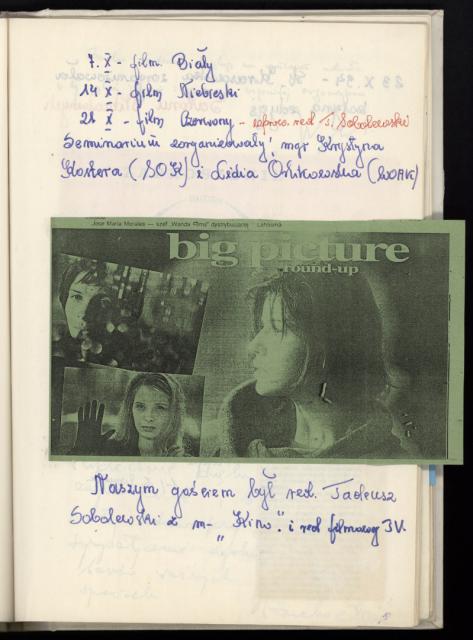 7. X - film Biały
14 X - film Niebieski
21 X - film Czerwony - zapros. red T. Sobolewski
Seminarium zorganizowały: mgr Krystyna
Kostera (SOK) i Lidia (WOAK)
Jose Maria Morales — szef „Wanda Films” dystrybuującej
big picture
round-up
Naszym gościem był red. Tadeusz
Sobolewski z m- "Kino". i red filmowy TV.